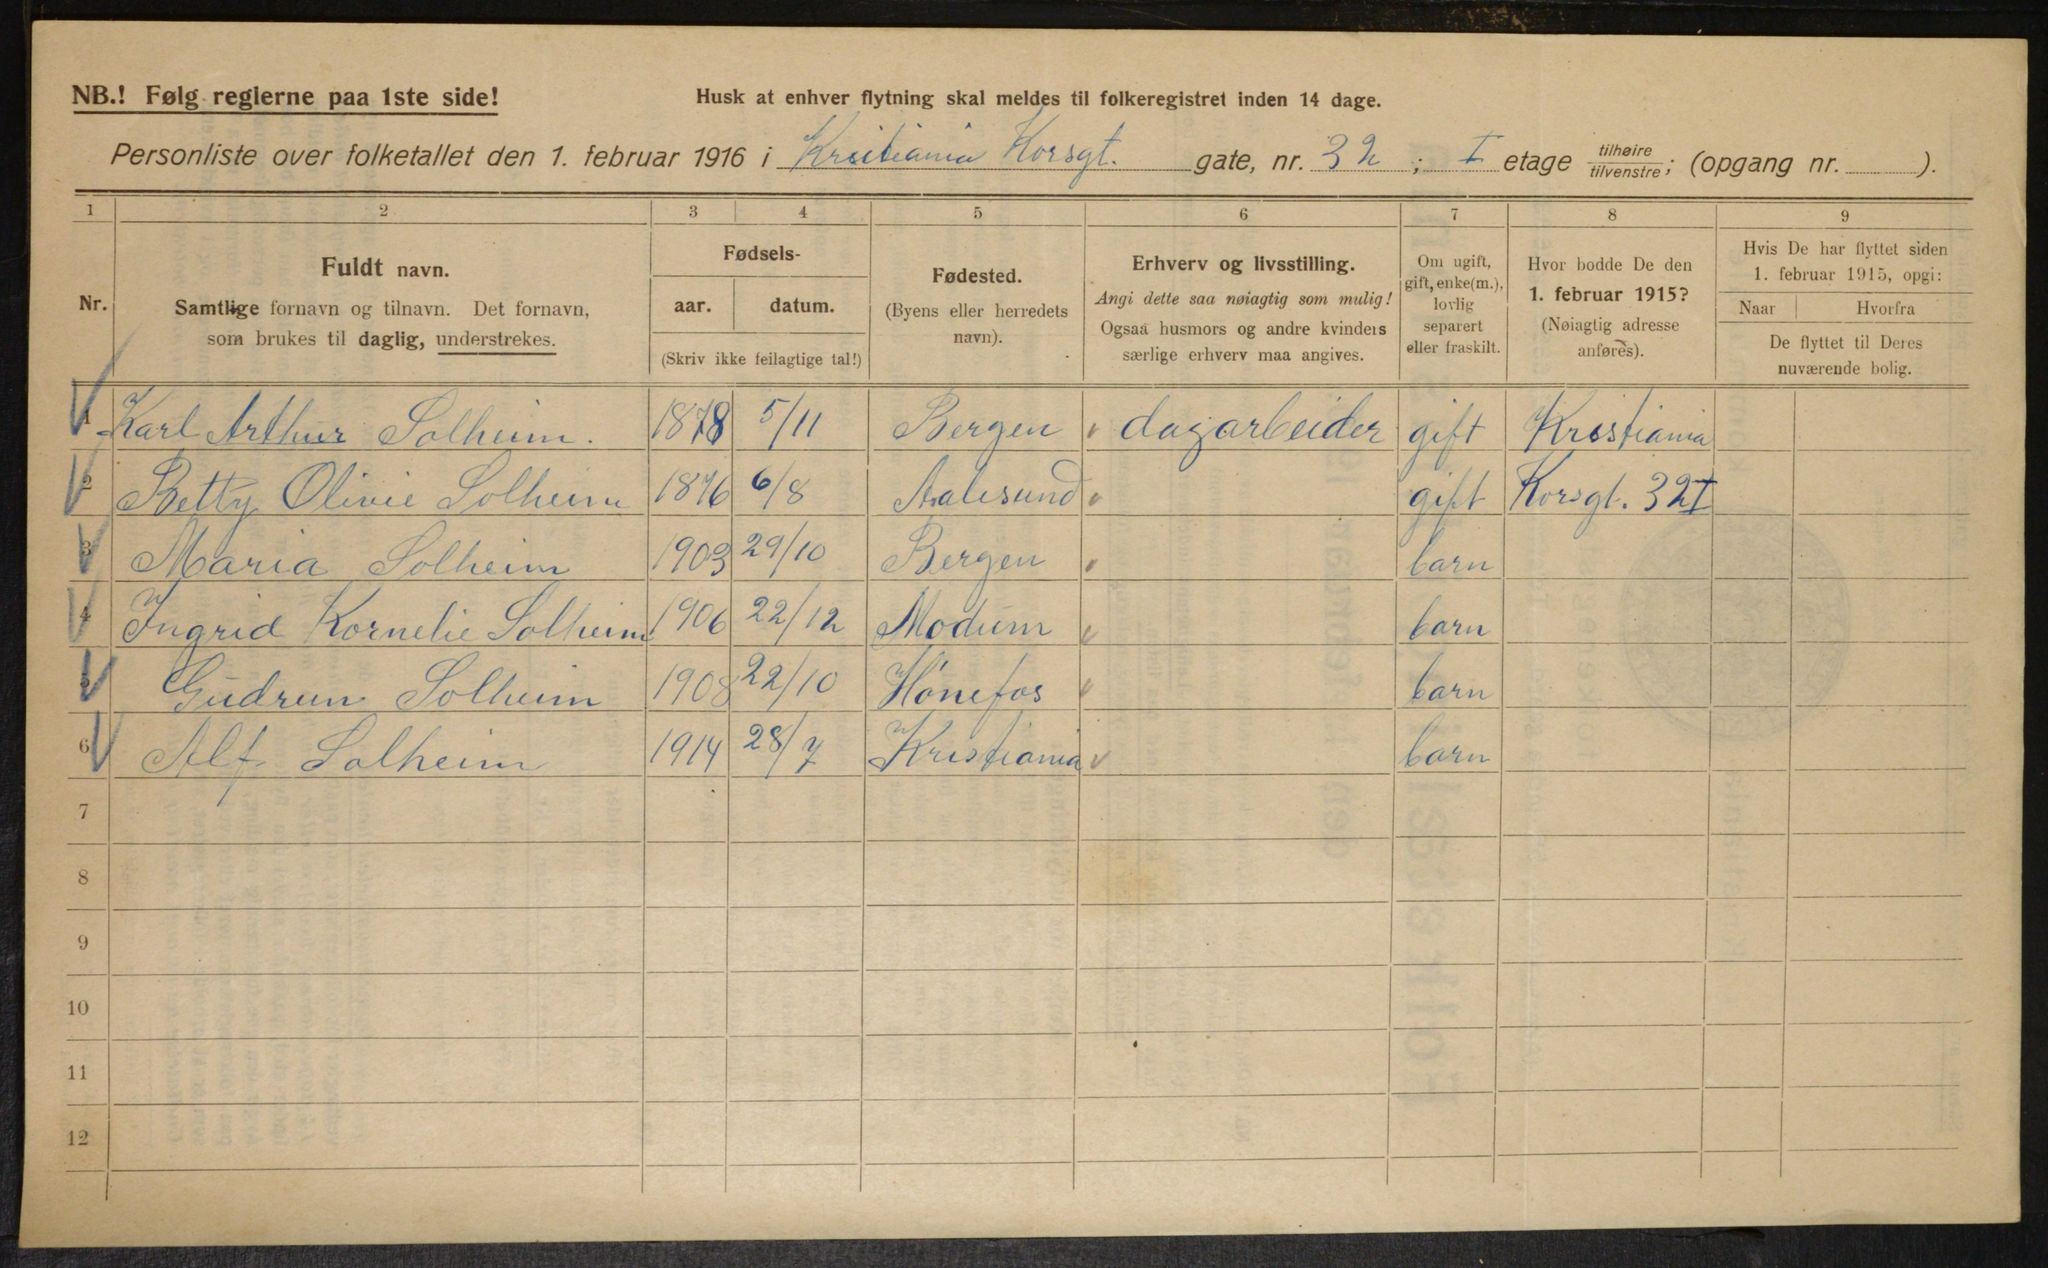 NB.! Følg reglerne paa 1ste side!
Husk at enhver flytning skal meldes til folkeregistret inden 14 dage.
Personliste over folketallet den 1. februar 1916 i Kristiania Korsgt. gate, nr. 32 ; I etage tilhøire/tilvenstre; (opgang nr. ).
1 2 3 4 5 6 7 8 9
Nr.
Fuldt navn.
Samtlige fornavn og tilnavn. Det fornavn,
som brukes til daglig, understrekes.
Fødsels-
aar. datum.
(Skriv ikke feilagtige tal!)
Fødested.
(Byens eller herredets
navn).
Erhverv og livsstilling.
Angi dette saa nøiagtig som mulig!
Ogsaa husmors og andre kvinders
særlige erhverv maa angives.
Om ugift,
gift, enke(m.),
lovlig
separert
eller fraskilt.
Hvor bodde De den
1. februar 1915?
(Nøiagtig adresse
anføres).
Hvis De har flyttet siden
1. februar 1915, opgi:
Naar Hvorfra
De flyttet til Deres
nuværende bolig.
1 Karl Arthur Solheim. 1878 5/11 Bergen dagarbeider gift Kristiania
2 Betty Olivie Solheim 1876 6/8 Aalesund gift Korsgt. 32 I
3 Maria Solheim 1903 29/10 Bergen barn
4 Ingrid Kornelie Solheim 1906 22/12 Modum barn
5 Gudrun Solheim 1908 22/10 Hönefos barn
6 Alf Solheim 1914 28/7 Kristiania barn
7
8
9
10
11
12